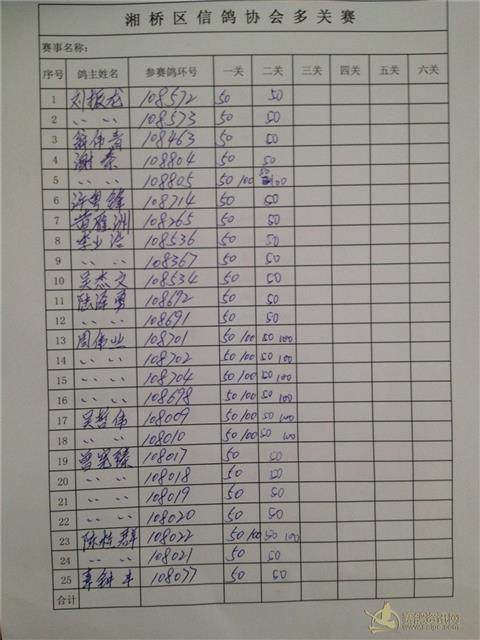 湘桥区信鸽协会多关赛
赛事名称:
序号 鸽主姓名 参赛鸽环号 一关 二关 三关 四关 五关 六关
1 刘振龙 108572 50 50
2 〃 〃 108573 50 50
3 翁伟音 108463 50 50
4 谢泰 108804 50 50
5 〃 〃 108805 50 100 50 100
6 许粤锋 108714 50 50
7 黄雅洲 108265 50 50
8 108536 50 50
9 〃 〃 108367 50 50
10 吴杰文 108534 50 50
11 陆泽勇 108692 50 50
12 〃 〃 108691 50 50
13 周伟业 108701 50 100 50 100
14 〃 〃 108702 50 100 50 100
15 〃 〃 108704 50 100 50 100
16 〃 〃 108698 50 100 50 100
17 吴哲伟 108009 50 100 50 100
18 〃 〃 108010 50 100 50 100
19 曾宪臻 108017 50 50
20 〃 〃 108018 50 50
21 〃 〃 108019 50 50
22 〃 〃 108020 50 50
23 陈栋群 108022 50 100 50 100
24 〃 〃 108021 50 50
25 108077 50 50
合计